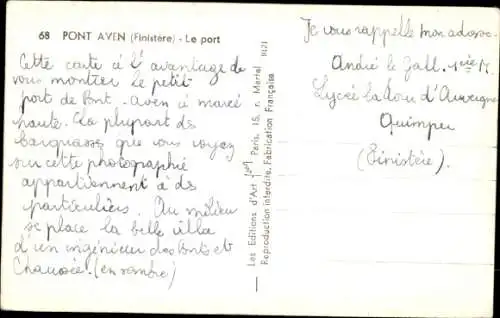 68 PONT AVEN (Finistère) - Le port
Cette carte a l'avantage de
vous montrer le petit
port de Pont. Aven à marée
haute. La plupart des
barquasses que vous voyez
sur cette photographie
appartiennent à ds
particuliers. Au milieu
se place la belle villa
d'un ingénieur des Ponts et
Chaussée. (en rombre)
Les Editions d'Art Paris, 15, r. Martel 1121
Reproduction interdite, Fabrication Française
Je vous rappelle mon adresse
André le Gall. 1ère M.
Lycée La Tour d'Auvergne
Quimper
(Finistère).